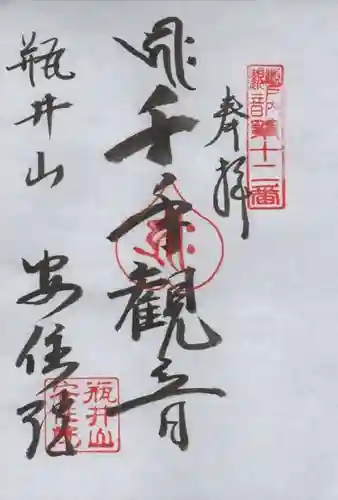 奉拝
瀬戸内
観音第十二番
千手観音
瓶井山
安住院
瓶井山
安住院